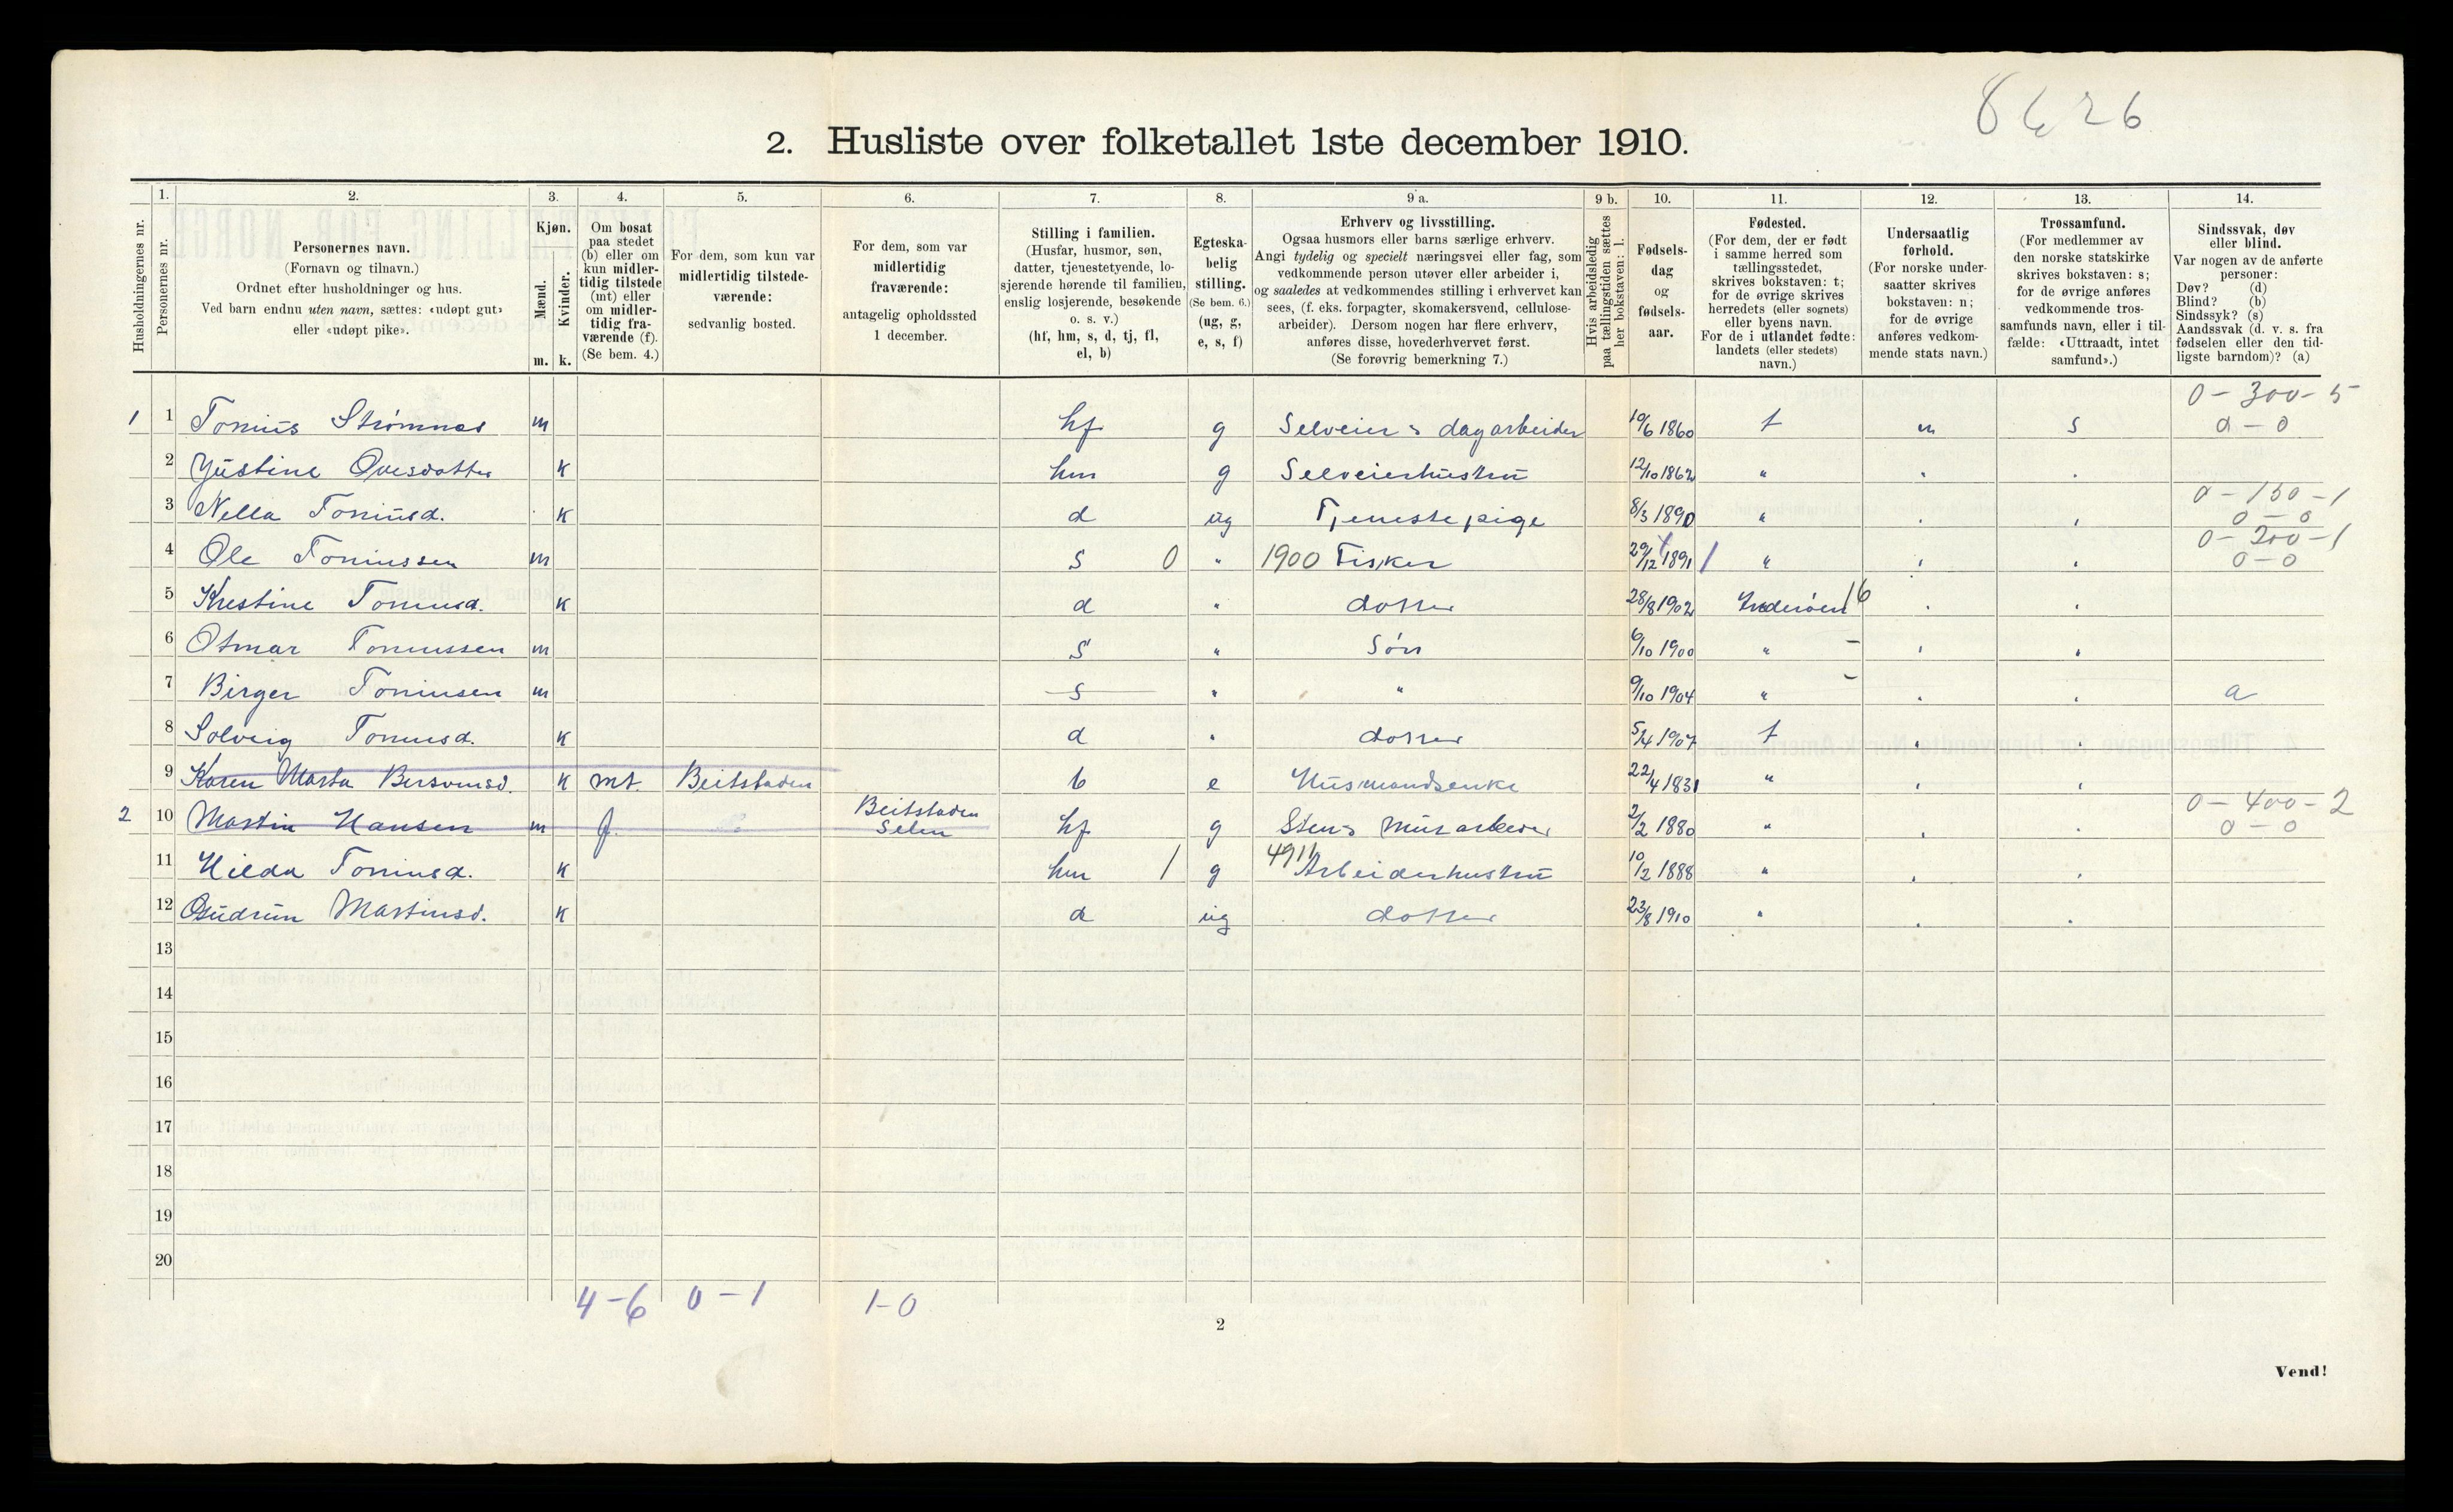 8 6 26
2. Husliste over folketallet 1ste december 1910.
Husholdningernes nr.
1.
Personernes nr.
2.
Personernes navn.
(Fornavn og tilnavn.)
Ordnet efter husholdninger og hus.
Ved barn endnu uten navn, sættes: «udøpt gut»
eller «udøpt pike».
3.
Kjøn.
Mænd.
Kvinder.
m. k.
4.
Om bosat
paa stedet
(b) eller om
kun midler-
tidig tilstede
(mt) eller
om midler-
tidig fra-
værende (f).
(Se bem. 4.)
5.
For dem, som kun var
midlertidig tilstede-
værende:
sedvanlig bosted.
6.
For dem, som var
midlertidig
fraværende:
antagelig opholdssted
1 december.
7.
Stilling i familien.
(Husfar, husmor, søn,
datter, tjenestetyende, lo-
sjerende hørende til familien,
enslig losjerende, besøkende
o. s. v.)
(hf, hm, s, d, tj, fl,
el, b)
8.
Egteska-
belig
stilling.
(Se bem. 6.)
(ug, g,
e, s, f)
9 a.
Erhverv og livsstilling.
Ogsaa husmors eller barns særlige erhverv.
Angi tydelig og specielt næringsvei eller fag, som
vedkommende person utøver eller arbeider i,
og saaledes at vedkommendes stilling i erhvervet kan
sees, (f. eks. forpagter, skomakersvend, cellulose-
arbeider). Dersom nogen har flere erhverv,
anføres disse, hovederhvervet først.
(Se forøvrig bemerkning 7.)
9 b.
Hvis arbeidsledig
paa tællingstiden sættes
her bokstaven: l.
10.
Fødsels-
dag
og
fødsels-
aar.
11.
Fødested.
(For dem, der er født
i samme herred som
tællingsstedet,
skrives bokstaven: t;
for de øvrige skrives
herredets (eller sognets)
eller byens navn.
For de i utlandet fødte:
landets (eller stedets)
navn.)
12.
Undersaatlig
forhold.
(For norske under-
saatter skrives
bokstaven: n;
for de øvrige
anføres vedkom-
mende stats navn.)
13.
Trossamfund.
(For medlemmer av
den norske statskirke
skrives bokstaven: s;
for de øvrige anføres
vedkommende tros-
samfunds navn, eller i til-
fælde: «Uttraadt, intet
samfund».)
14.
Sindssvak, døv
eller blind.
Var nogen av de anførte
personer:
Døv? (d)
Blind? (b)
Sindssyk? (s)
Aandssvak (d. v. s. fra
fødselen eller den tid-
ligste barndom)? (a)
0 - 300 - 5
1 1 Tonius Strømnes m hf g Selveier & dagarbeider 19/6 1860 t n s 0 - 0
2 Justine Ovesdatter k hm g Selveierhustru 12/10 1862 "
0 - 150 - 1
3 Nella Toniusd. k d ug Tjenestepige 8/3 1890 " 0 - 0
0 - 200 - 1
4 Ole Toniussen m s 0 " 1900 Fisker 29/12 1891 / " 0 - 0
5 Kristine Toniusd. k d " datter 28/8 1902 Inderøen 16
6 Otmar Toniussen m s " Søn 6/10 1900 " -
7 Birger Toniusen m s " " 9/10 1904 " - a
8 Solveig Toniusd. k d " datter 5/4 1907 t
9 Karen Marta Bersvensd. k mt Beitstaden b e Husmandsenke 22/4 1831 "
Beitstaden 0 - 400 - 2
2 10 Martin Hansen m f. Selen hf g Sten & Murarbeider 2/2 1880 " 0 - 0
11 Hilda Toniusd. k hm / g 4911 Arbeiderhustru 10/2 1888 "
12 Gudrun Martinsd. k d ug datter 23/8 1910 "
13
14
15
16
17
18
19
20
4 - 6 0 - 1 1 - 0
2
Vend!